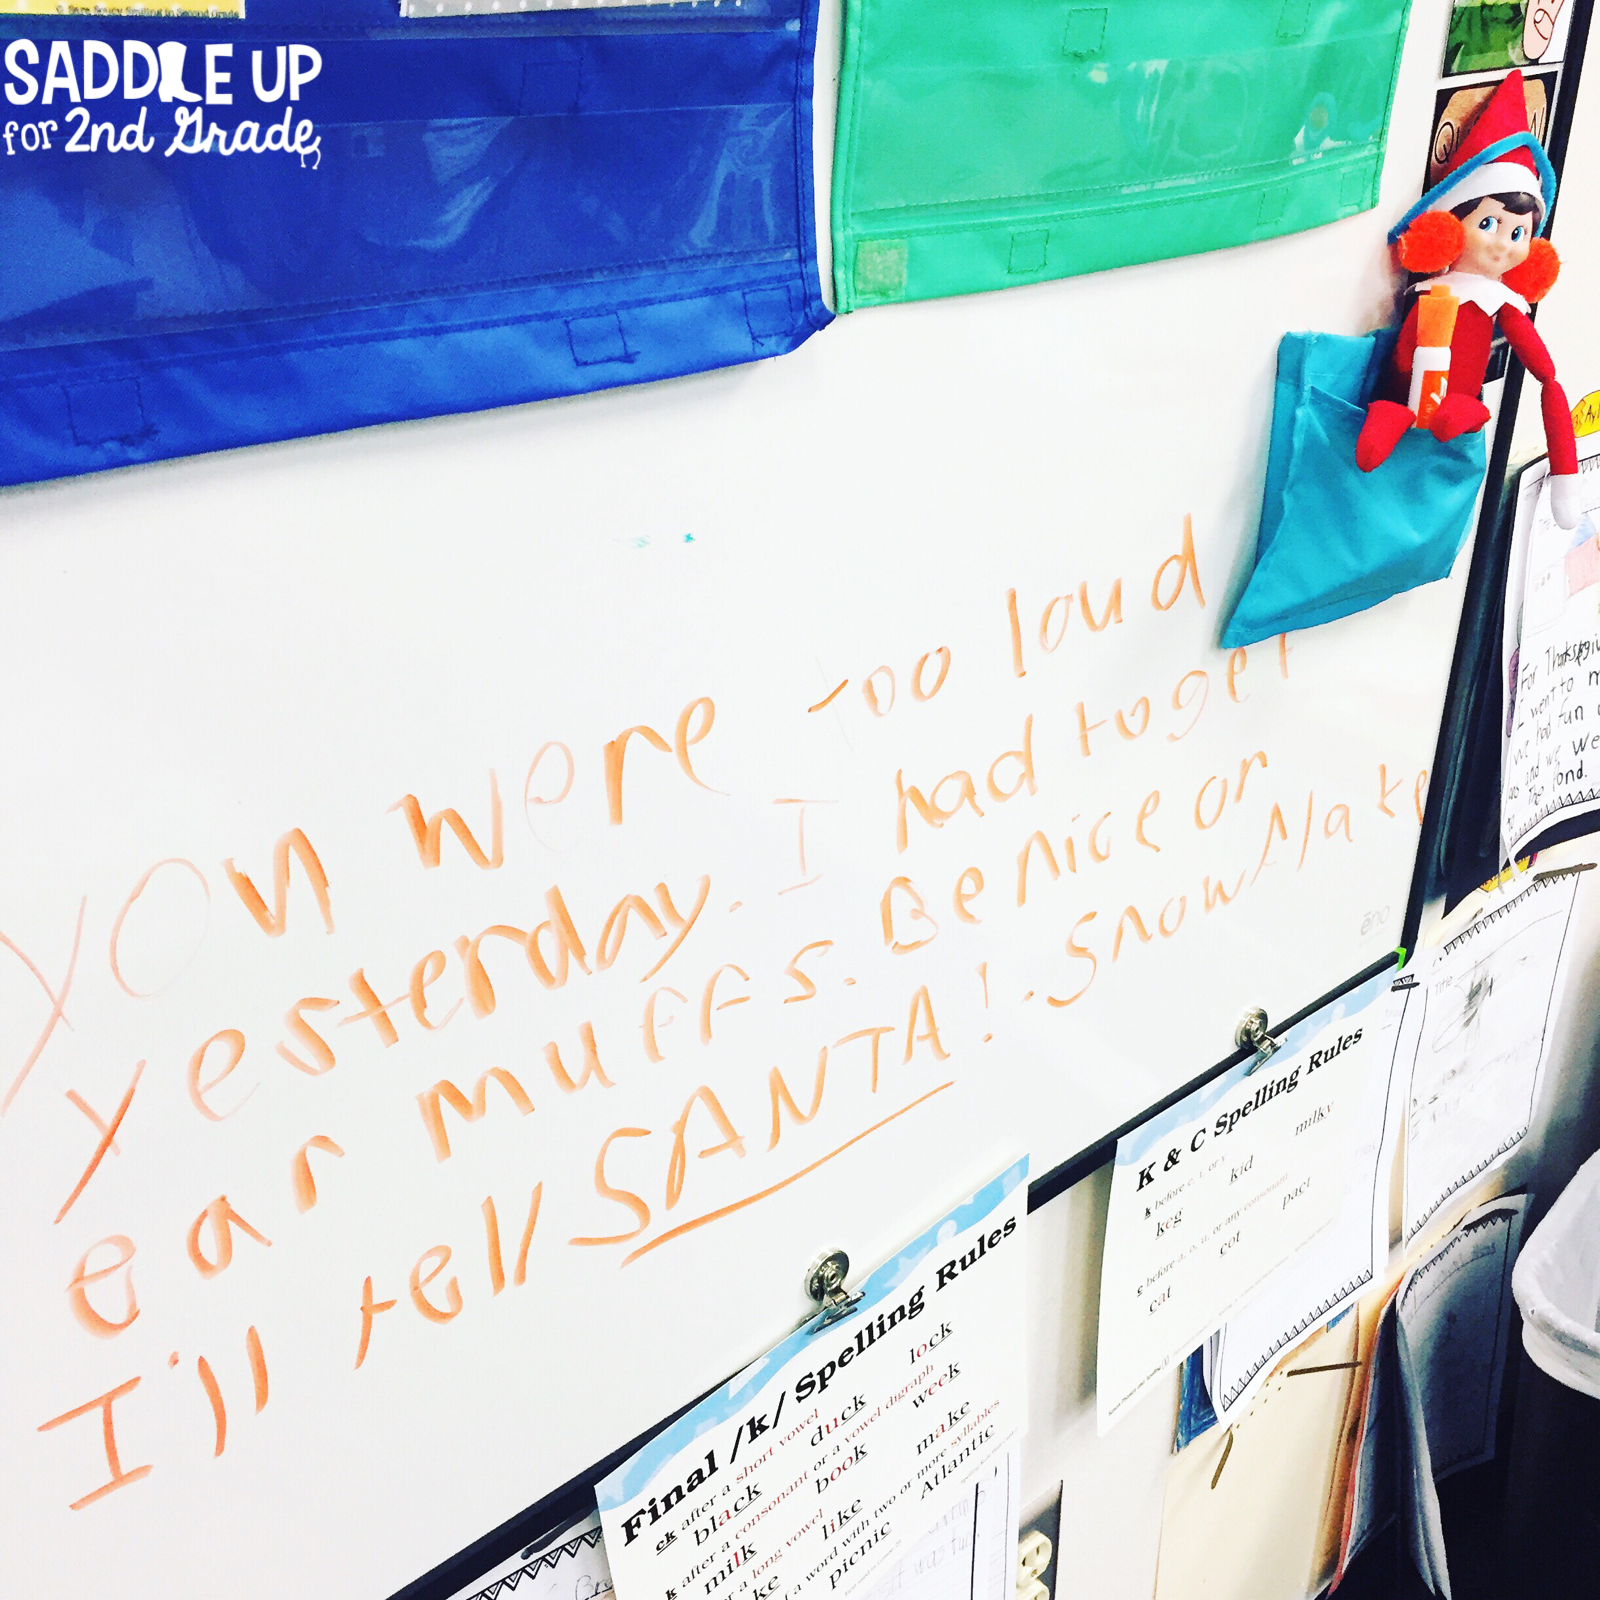 © Sara Soucy Smiling in Second Grade
SADDLE UP
for 2nd Grade
You were too loud
yesterday. I had to get
ear muffs. Be nice or
I'll tell SANTA! . Snowflake
ēno
Final /k/ Spelling Rules
ck after a short vowel
black duck lock
k after a consonant or a vowel digraph
milk book week
or a long vowel
like make
a word with two or more syllables
picnic Atlantic
K & C Spelling Rules
k before e, i, or y
keg kid milky
c before a, o, u, or any consonant
cat cot pact
For Thanksgiv
I went to m
we had fun
and we We
The Pond.
Title